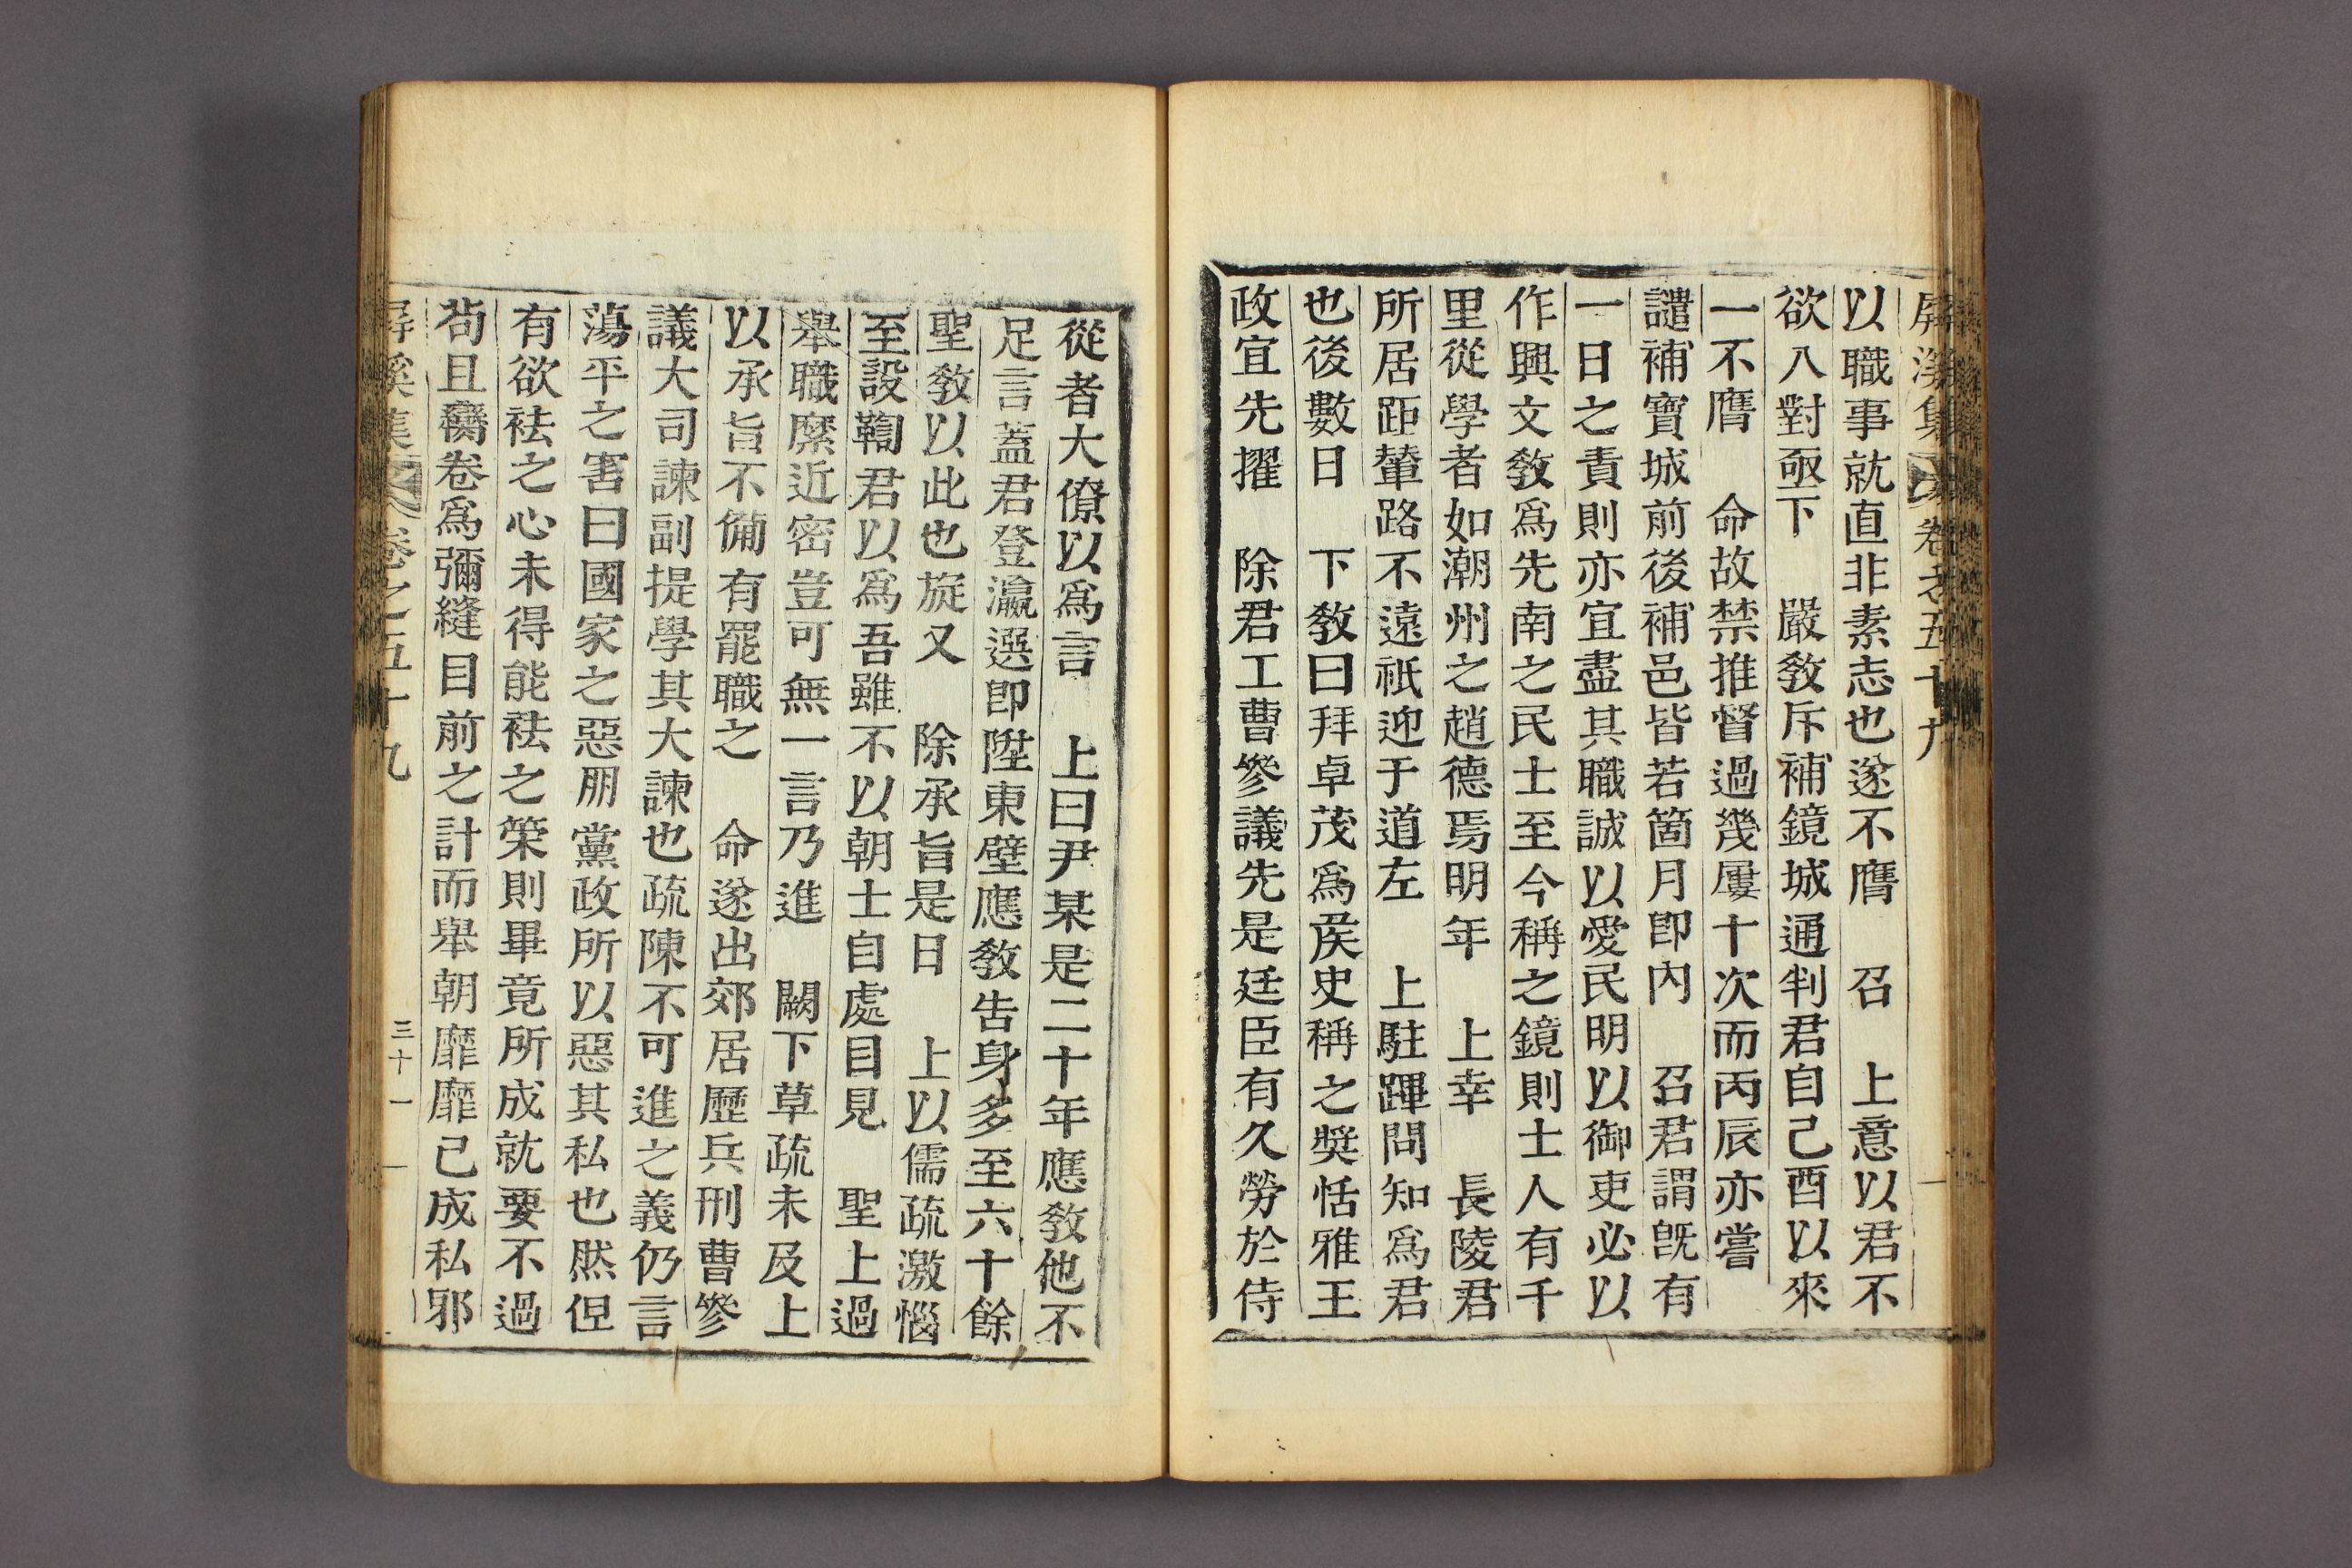 屛溪集 卷之五十九
以職事就直非素志也遂不膺　召　上意以君不
欲入對亟下　嚴敎斥補鏡城通判君自己酉以來
一不膺　命故禁推督過幾屢十次而丙辰亦嘗
譴補寶城前後補邑皆若箇月卽內　召君謂旣有
一日之責則亦宜盡其職誠以愛民明以御吏必以
作興文敎爲先南之民士至今稱之鏡則士人有千
里從學者如潮州之趙德焉明年　上幸　長陵君
所居距輦路不遠祗迎于道左　上駐蹕問知爲君
也後數日　下敎曰拜卓茂爲侯史稱之奬恬雅王
政宜先擢　除君工曹參議先是廷臣有久勞於侍
從者大僚以爲言　上曰尹某是二十年應敎他不
足言蓋君登瀛選卽陞東壁應敎告身多至六十餘
聖敎以此也旋又　除承旨是日　上以儒疏激惱
至設鞫君以爲吾雖不以朝士自處目見　聖上過
舉職縻近密豈可無一言乃進　闕下草疏未及上
以承旨不備有罷職之　命遂出郊居歷兵刑曹參
議大司諫副提學其大諫也疏陳不可進之義仍言
蕩平之害曰國家之惡朋黨政所以惡其私也然但
有欲祛之心未得能祛之策則畢竟所成就要不過
苟且臠卷爲彌縫目前之計而舉朝靡靡已成私邪
屛溪集 卷之五十九　三十一